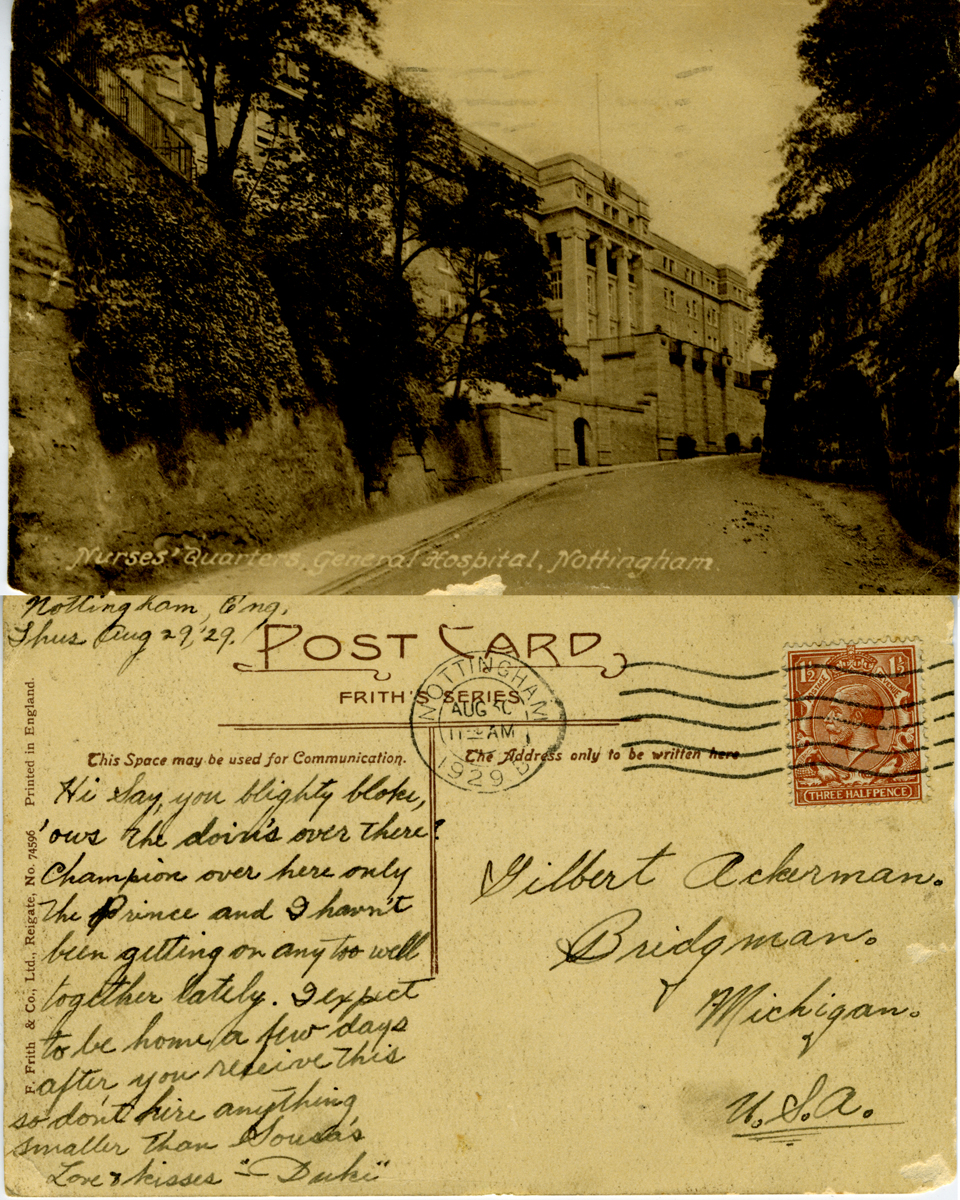 Nurses' Quarters, General Hospital, Nottingham.
Nottingham, Eng.
Thur Aug 29, '29.
POST CARD
FRITH'S SERIES
This Space may be used for Communication.
The Address only to be written here
NOTTINGHAM
AUG
11 AM
1929
1½ 1½
THREE HALFPENCE
F. Frith & Co., Ltd., Reigate, No. 74596 Printed in England.
Hi Say, you blighty bloke,
'ows the doin's over there?
Champion over here only
the Prince and I havn't
been getting on any too well
together lately. I expect
to be home a few days
after you receive this
so don't hire anything
smaller than Sousa's
Love & kisses "—Duke"
Gilbert Ackerman.
Bridgman.
Michigan.
U.S.A.